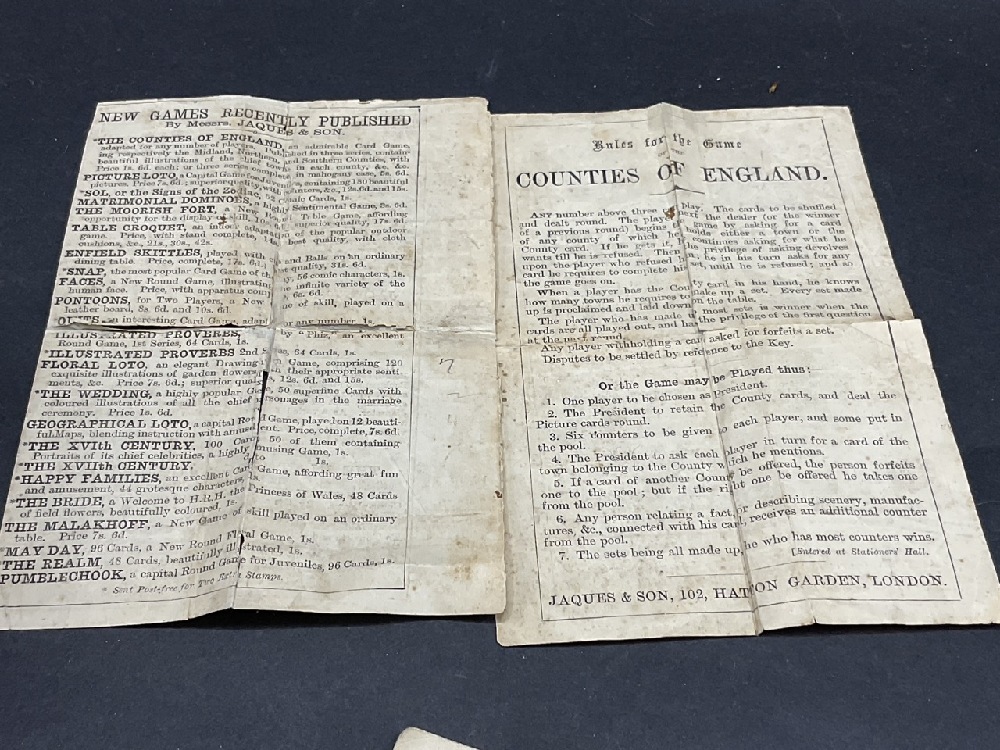 NEW GAMES RECENTLY PUBLISHED
By Messrs. JAQUES & SON.
*THE COUNTIES OF ENGLAND, an admirable Card Game,
adapted for any number of players. Published in three series, contain-
ing respectively the Midland, Northern, and Southern Counties, with
beautiful illustrations of the chief towns in each county, &c. &c.
Price 1s. 6d. each; or three series complete in mahogany case, 5s. 6d.
PICTURE LOTO, a Capital Game for Juveniles, containing 180 beautiful
pictures. Price 7s. 6d.; superior quality, with counters, &c., 12s. 6d. and 15s.
*SOL, or the Signs of the Zodiac, 52 Cards, 1s.
MATRIMONIAL DOMINOES, a highly Sentimental Game, 5s. 6d.
THE MOORISH FORT, a New Table Game, affording
opportunity for the display of skill, 10s. 6d.; superior quality, 17s. 6d.
TABLE CROQUET, an indoor adaptation of the popular outdoor
game. Price, with stand complete, 15s.; best quality, with cloth
cushions, &c., 21s., 30s., 42s.
ENFIELD SKITTLES, played with and Balls on an ordinary
dining table. Price, complete, 17s. 6d.; quality, 31s. 6d.
*SNAP, the most popular Card Game of the 56 comic characters, 1s.
FACES, a New Round Game, illustrating the infinite variety of the
human face. Price, with apparatus complete, 6s. 6d.
PONTOONS, for Two Players, a New Game of skill, played on a
leather board, 8s. 6d. and 10s. 6d.
an interesting Card Game, adapted for any number, 1s.
ILLUSTRATED PROVERBS, by a "Phiz," an excellent
Round Game, 1st Series, 64 Cards, 1s.
*ILLUSTRATED PROVERBS 2nd Series, 64 Cards, 1s.
FLORAL LOTO, an elegant Drawing Game, comprising 120
exquisite illustrations of garden flowers, in their appropriate senti-
ments, &c. Price 7s. 6d.; superior quality, 12s. 6d. and 15s.
*THE WEDDING, a highly popular Game, 50 superfine Cards with
coloured illustrations of all the chief personages in the marriage
ceremony. Price 1s. 6d.
GEOGRAPHICAL LOTO, a capital Round Game, played on 12 beauti-
ful Maps, blending instruction with amusement. Price, complete, 7s. 6d.
*THE XVIth CENTURY. 100 Cards, 50 of them containing
Portraits of its chief celebrities, a highly amusing Game, 1s.
*THE XVIIth CENTURY. 1s.
*HAPPY FAMILIES, an excellent Card Game, affording great fun
and amusement, 44 grotesque characters, 1s.
*THE BRIDE, a Welcome to H.R.H. the Princess of Wales, 48 Cards
of field flowers, beautifully coloured, 1s.
THE MALAKHOFF, a New Game of skill played on an ordinary
table. Price 7s. 6d.
*MAY DAY, 25 Cards, a New Round Floral Game, 1s.
*THE REALM, 48 Cards, beautifully illustrated, 1s.
PUMBLECHOOK, a capital Round Game for Juveniles, 96 Cards, 1s.
* Sent Post-free for Two Extra Stamps.
Rules for the Game
COUNTIES OF ENGLAND.
ANY number above three play. The cards to be shuffled
and dealt round. The player next the dealer (or the winner
of a previous round) begins the game by asking for a card
of any county of which he holds either a town or the
County card. If he gets it, he continues asking for what he
wants till he is refused. Then the privilege of asking devolves
upon the player who refused him; he in his turn asks for any
card he requires to complete his set, until he is refused; and so
the game goes on.
When a player has the County card in his hand, he knows
how many towns he requires to make up a set. Every set made
up is proclaimed and laid down on the table.
The player who has made most sets is winner when the
cards are all played out, and has the privilege of the first question
at the next round.
Any player withholding a card asked for forfeits a set.
Disputes to be settled by reference to the Key.
Or the Game may be Played thus:
1. One player to be chosen as President.
2. The President to retain the County cards, and deal the
Picture cards round.
3. Six counters to be given to each player, and some put in
the pool.
4. The President to ask each player in turn for a card of the
town belonging to the County which he mentions.
5. If a card of another County be offered, the person forfeits
one to the pool; but if the right one be offered he takes one
from the pool.
6. Any person relating a fact, or describing scenery, manufac-
tures, &c., connected with his card, receives an additional counter
from the pool.
7. The sets being all made up, he who has most counters wins.
[Entered at Stationers' Hall.
JAQUES & SON, 102, HATTON GARDEN, LONDON.